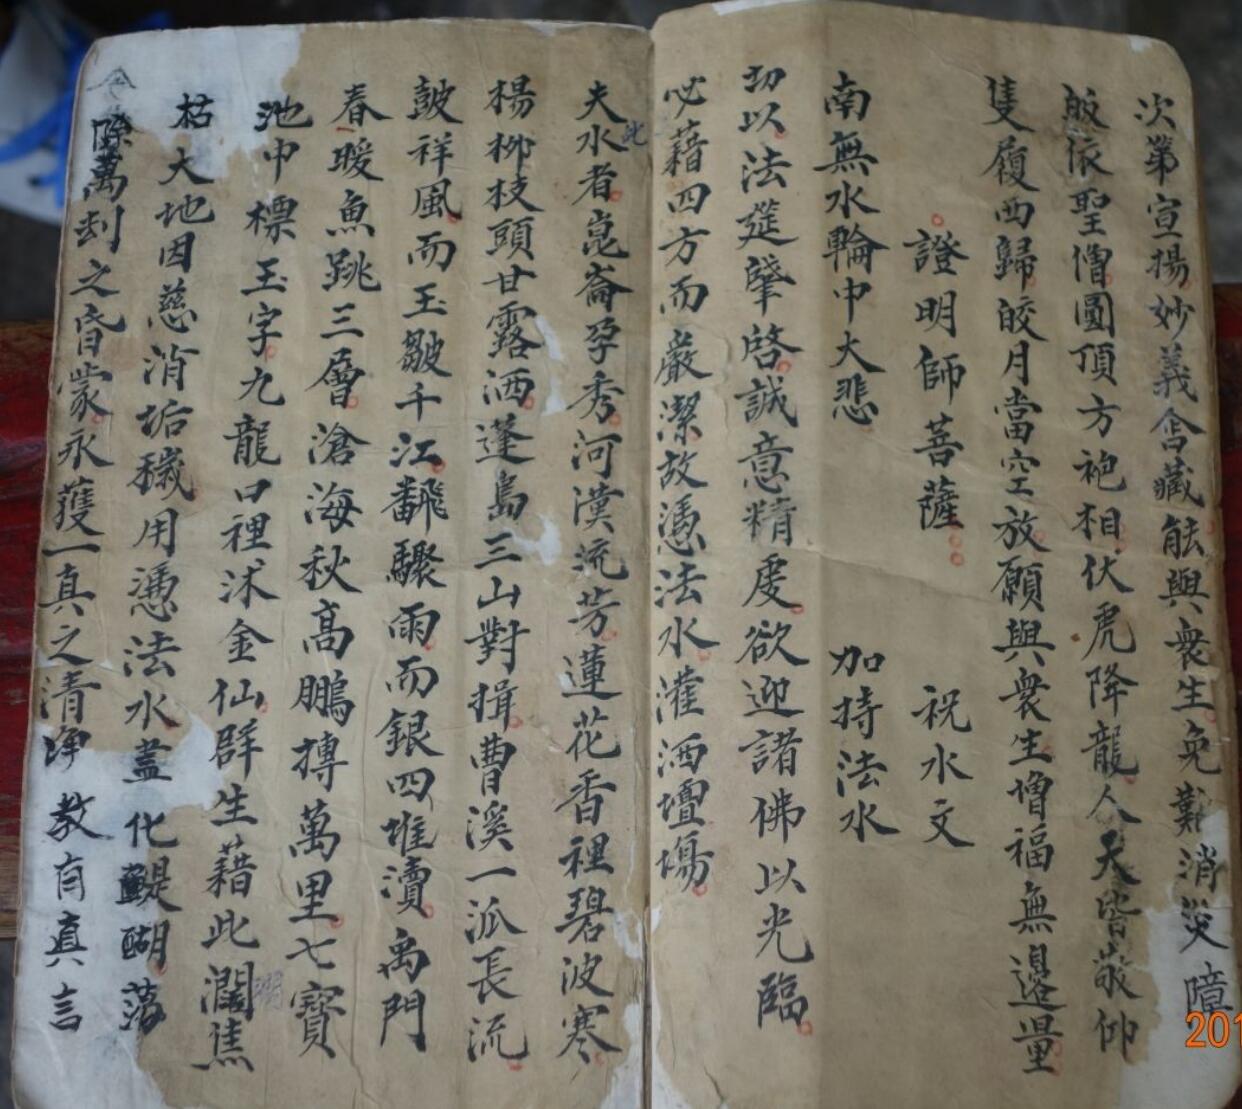 次第宣揚妙義含藏能與衆生免難消災障
皈依聖僧圓頂方袍相伏虎降龍人天皆敬仰
隻履西歸皎月當空放願與衆生增福無邊量
證明師菩薩 祝水文
南無水輪中大悲 加持法水
切以法筵肇啓誠意精虔欲迎諸佛以光臨
必藉四方而嚴潔故憑法水灌洒壇場
夫水者崑崙孕秀河漢流芳蓮花香裡碧波寒
此
楊柳枝頭甘露洒蓬島三山對揖曹溪一派長流
皷祥風而玉皺千江飜驟雨而銀四堆瀆禹門
春暖魚跳三層滄海秋高鵬摶萬里七寶
池中標玉字九龍口裡沭金仙群生藉此濶焦
枯大地因慈消垢穢用憑法水盖化醍醐蕩
除萬刦之昏蒙永獲一真之清净 教有真言
201